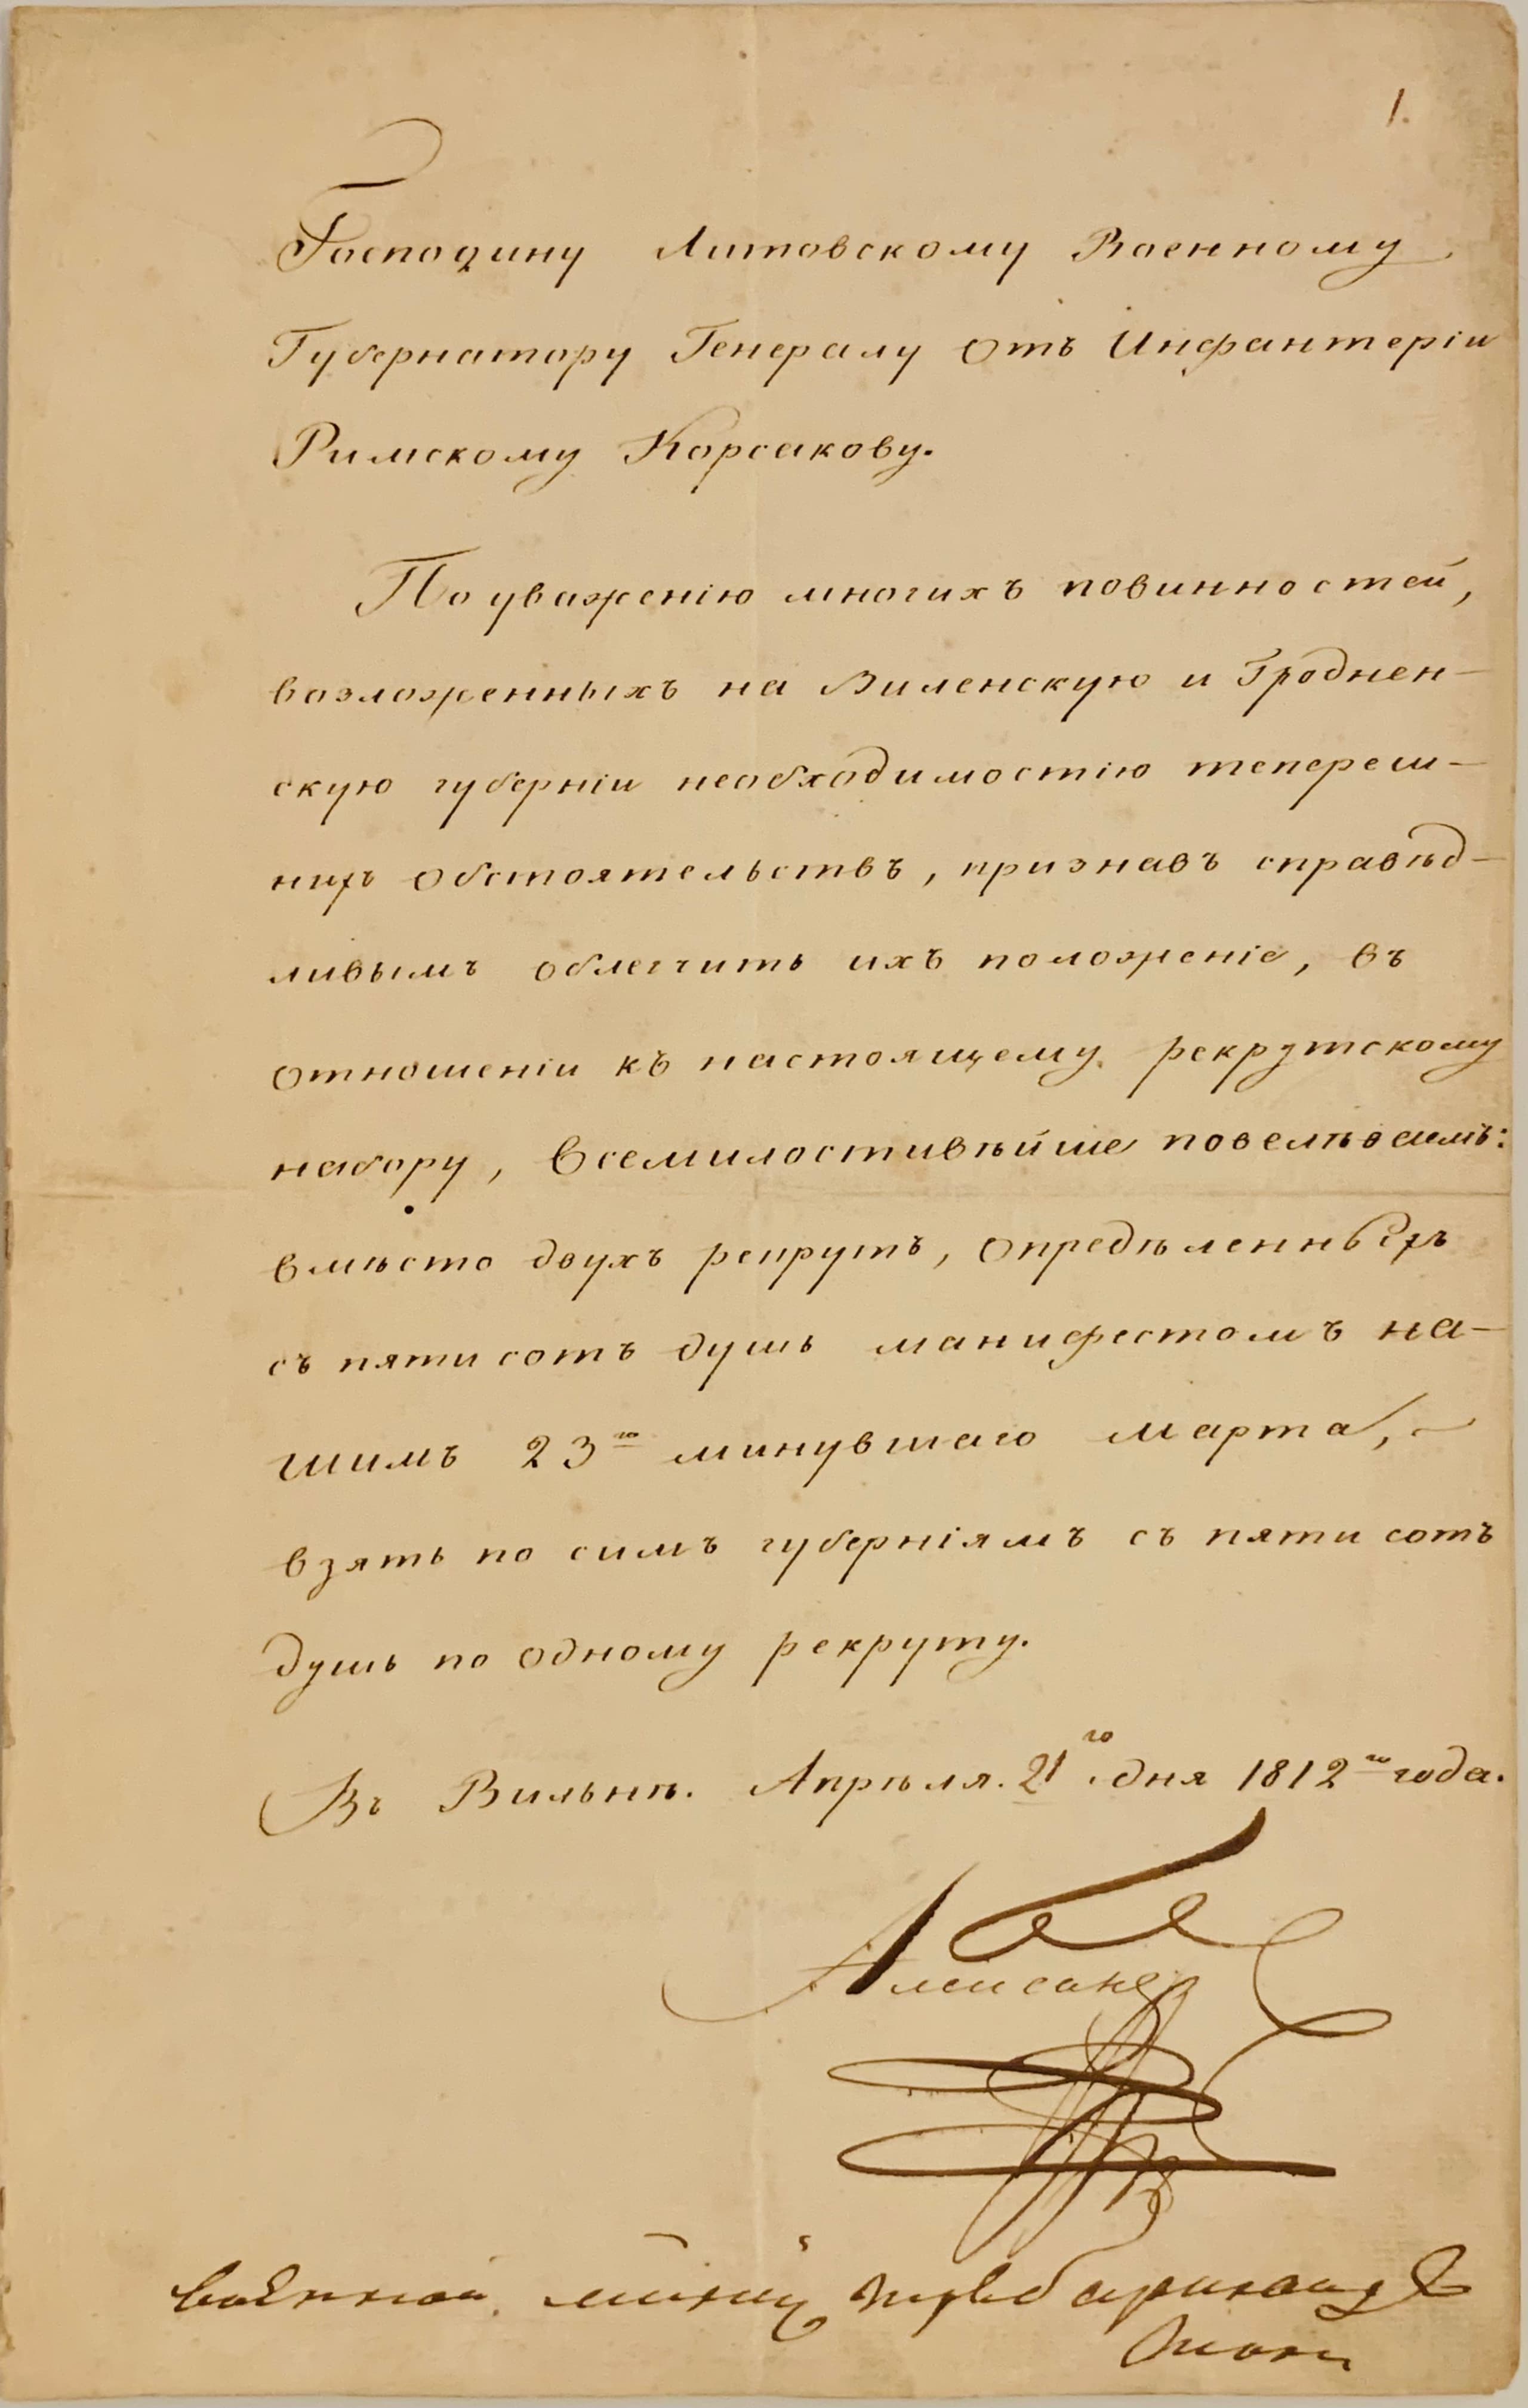 1.
Господину Литовскому Военному
Губернатору Генералу отъ Инфантеріи
Римскому Корсакову.
По уваженію многихъ повинностей,
возложенныхъ на Виленскую и Гроднен-
скую губерніи необходимостію тепереш-
нихъ обстоятельствъ, признавъ справѣд-
ливымъ облегчить ихъ положеніе, въ
отношеніи къ настоящему рекрутскому
набору, Всемилостивѣйше повелѣваемъ:
вмѣсто двухъ рекрутъ, опредѣленныхъ
съ пяти сотъ душъ манифестомъ на-
шимъ 23го минувшаго марта,
взять по симъ губерніямъ съ пяти сотъ
душъ по одному рекруту.
Въ Вильнѣ. Апрѣля. 21го дня 1812го года.
Александръ
военной